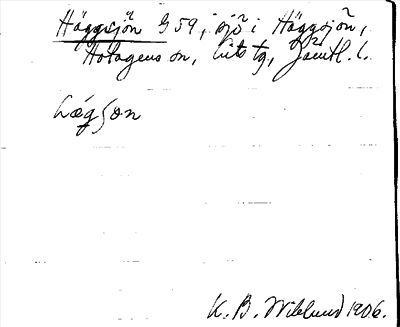 Häggsjön G 59, sjö i Häggsjön,
Hotagens sn, Lits tg, Jämtl. l.
K. B. Wiklund 1906.